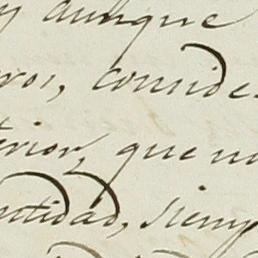 y aunque
ros, conside
terior, que no
ntidad, siemp